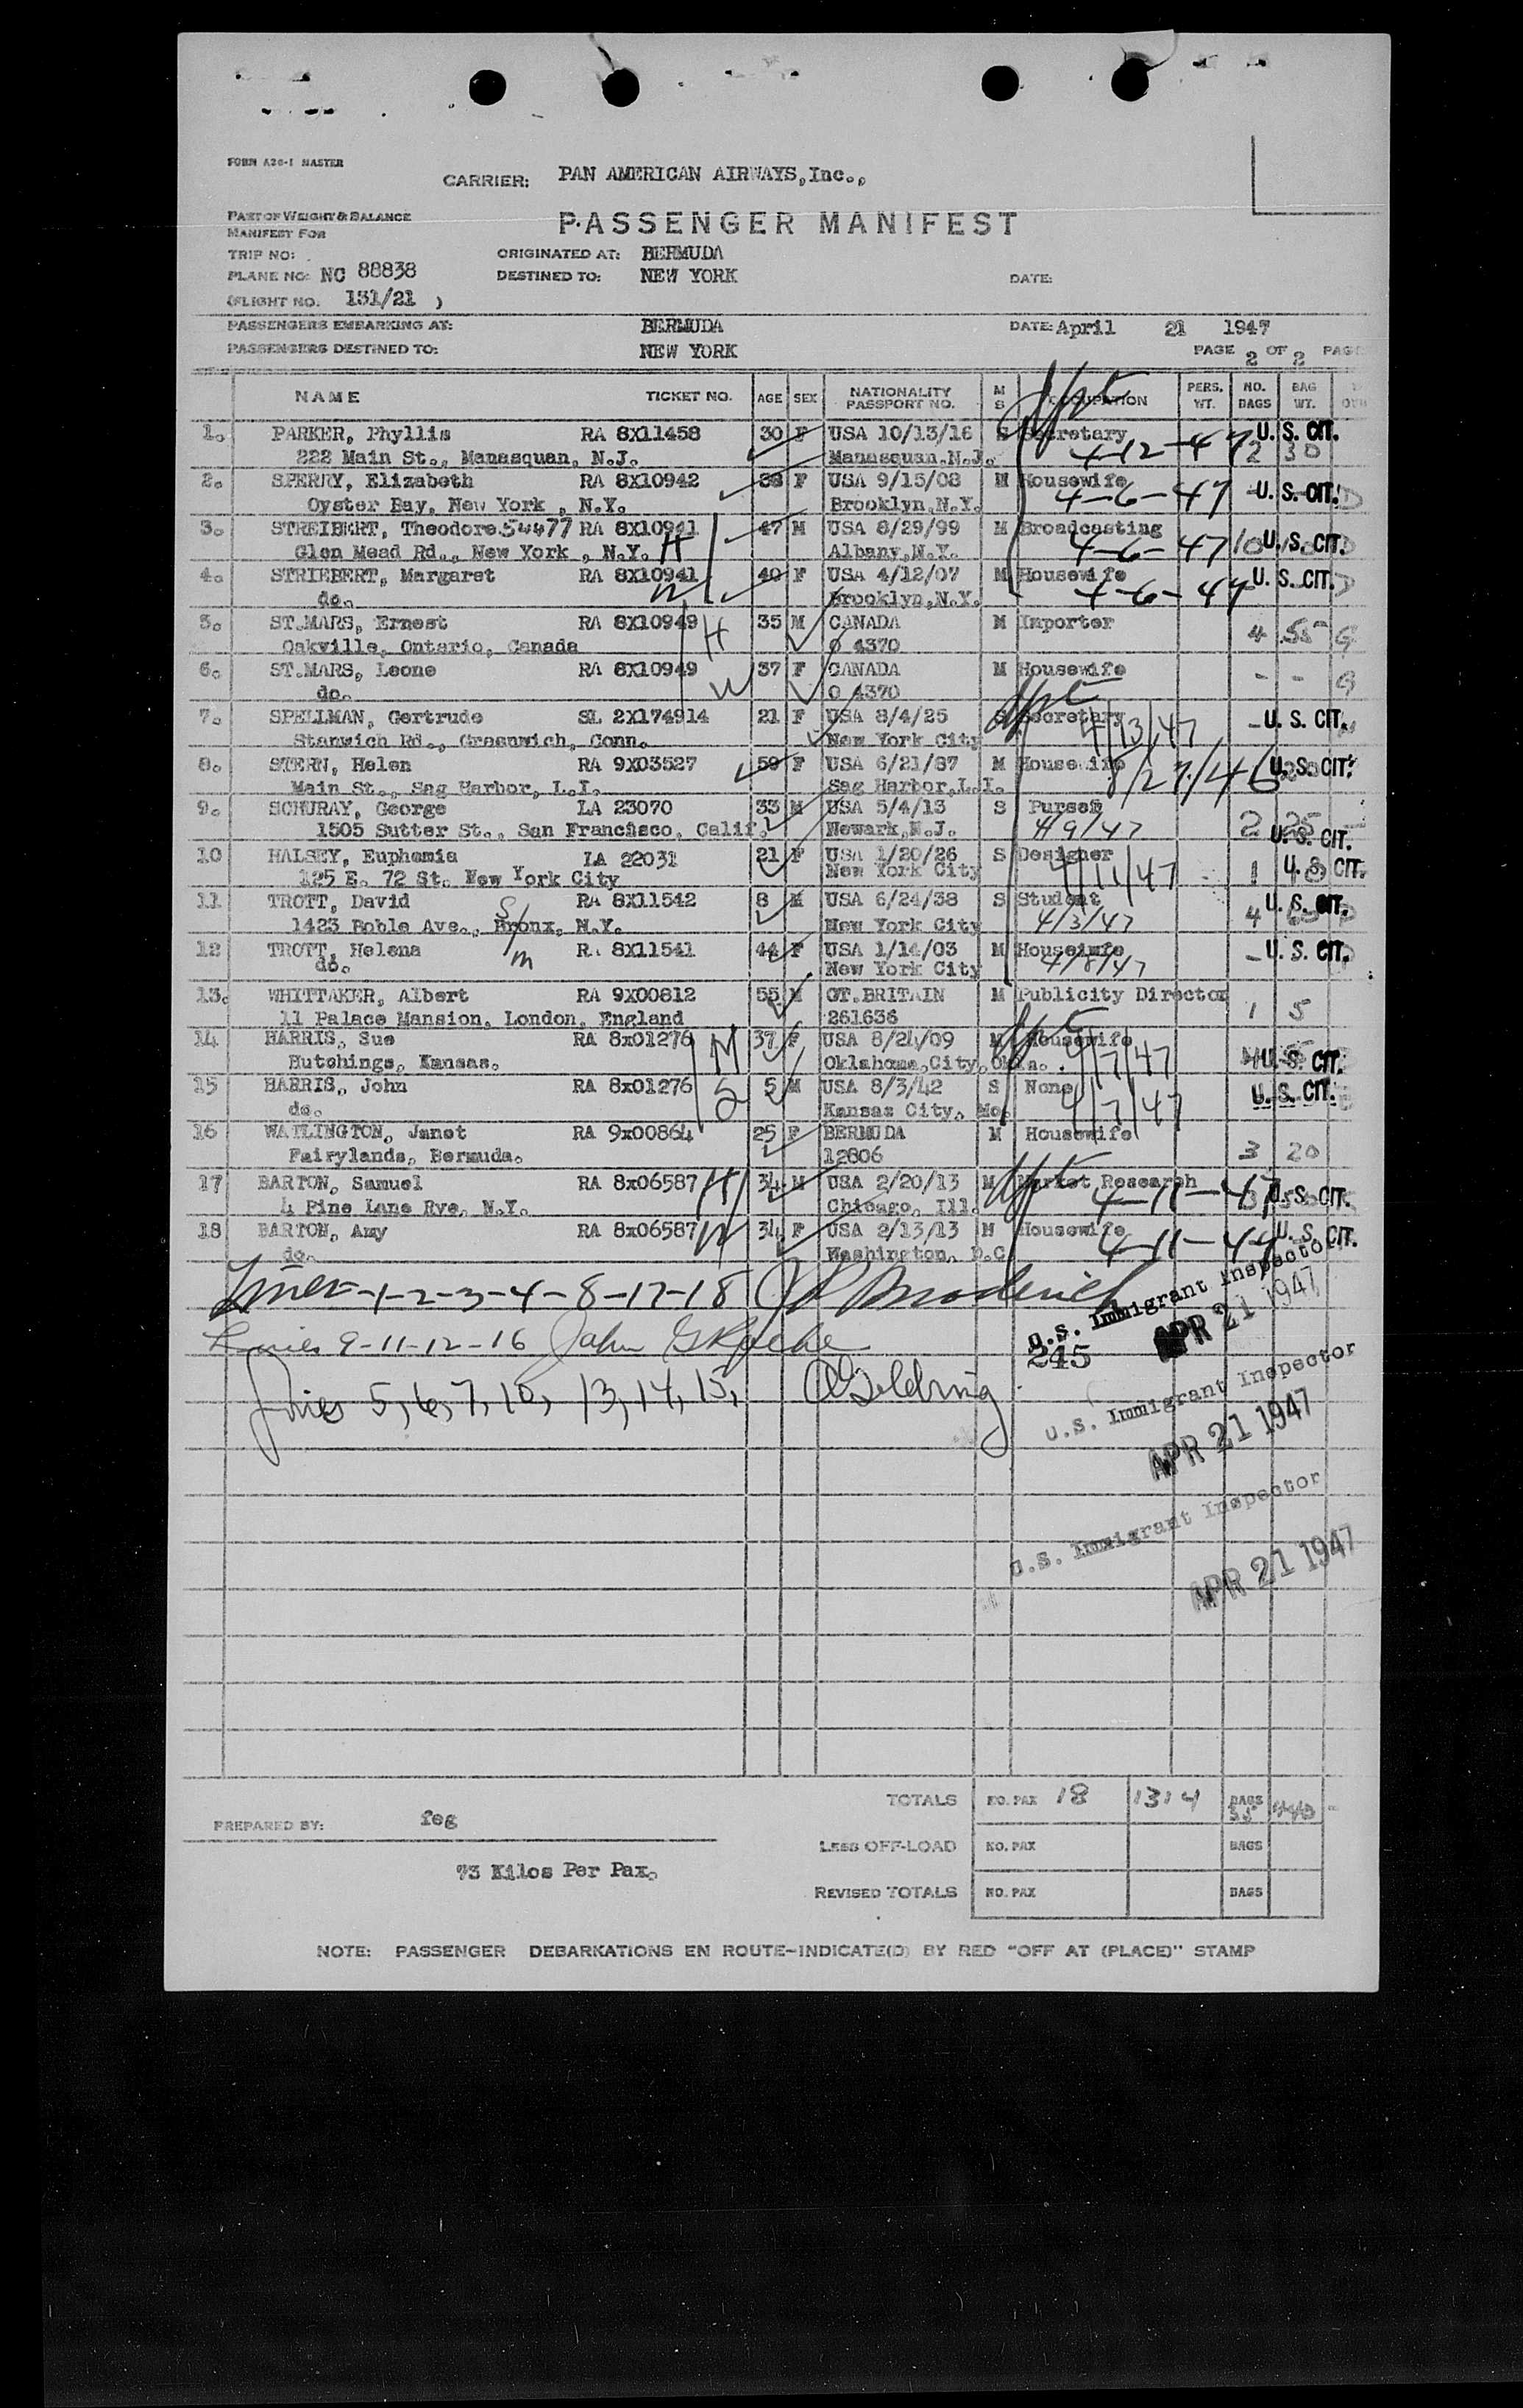 FORM A20-1 MASTER
CARRIER: PAN AMERICAN AIRWAYS,Inc.,
PART OF WEIGHT & BALANCE
MANIFEST FOR
PASSENGER MANIFEST
TRIP NO: ORIGINATED AT: BERMUDA
PLANE NO: NC 88838 DESTINED TO: NEW YORK DATE:
(FLIGHT NO. 131/21 )
PASSENGERS EMBARKING AT: BERMUDA DATE: April 21 1947
PASSENGERS DESTINED TO: NEW YORK PAGE 2 OF 2 PAG
NAME TICKET NO. AGE SEX NATIONALITY PASSPORT NO. M S OCCUPATION PERS. WT. NO. BAGS BAG WT.
1. PARKER, Phyllis RA 8X11458 30 F USA 10/13/16 S Secretary U. S. CIT.
222 Main St., Manasquan, N.J. Manasquan,N.J. 4-12-47 2 30
2. SPERRY, Elizabeth RA 8X10942 38 F USA 9/15/08 M Housewife
Oyster Bay, New York , N.Y. Brooklyn,N.Y. 4-6-47 U. S. CIT.
3. STREIBERT, Theodore 54477 RA 8X10941 47 M USA 8/29/99 M Broadcasting
Glen Mead Rd., New York , N.Y. H Albany,N.Y. 4-6-47 10 U. S. CIT.
4. STRIEBERT, Margaret RA 8X10941 40 F USA 4/12/07 M Housewife U. S. CIT.
do. W Brooklyn,N.Y. 4-6-47
5. ST.MARS, Ernest RA 8X10949 35 M CANADA M Importer
Oakville, Ontario, Canada H O 4370 4 55 G
6. ST.MARS, Leone RA 8X10949 37 F CANADA M Housewife
do. W O 4370 - - G
7. SPELLMAN, Gertrude SL 2X174914 21 F USA 8/4/25 S Secretary - U. S. CIT.
Stanwich Rd., Greenwich, Conn. New York City 4/13/47
8. STERN, Helen RA 9X03527 59 F USA 6/21/87 M Housewife U. S. CIT.
Main St., Sag Harbor, L.I. Sag Harbor,L.I. 8/27/46
9. SCHURAY, George LA 23070 33 M USA 5/4/13 S Purser
1505 Sutter St., San Francisco, Calif. Newark,N.J. 4/9/47 2 25 U. S. CIT.
10 HALSEY, Euphemia LA 22031 21 F USA 1/20/26 S Designer
125 E. 72 St. New York City New York City 4/11/47 1 U. S. CIT.
11 TROTT, David RA 8X11542 8 M USA 6/24/38 S Student U. S. CIT.
1423 Boble Ave., Bronx, N.Y. S New York City 4/3/47 4
12 TROTT, Helena R. 8X11541 44 F USA 1/14/03 M Housewife - U. S. CIT.
do. m New York City 4/8/47
13. WHITTAKER, Albert RA 9X00812 55 M GT.BRITAIN M Publicity Director
11 Palace Mansion, London, England 261636 1 5
14 HARRIS, Sue RA 8x01276 M 37 F USA 8/24/09 M Housewife
Hutchings, Kansas. Oklahoma,City,Okla. 4/7/47 U. S. CIT.
15 HARRIS, John RA 8x01276 S 5 M USA 8/3/42 S None U. S. CIT.
do. Kansas City, Mo. 4/7/47
16 WATLINGTON, Janet RA 9x00864 25 F BERMUDA M Housewife
Fairylands, Bermuda. 12806 3 20
17 BARTON, Samuel RA 8x06587 H 34 M USA 2/20/13 M Market Research
4 Pine Lane Rye, N.Y. Chicago, Ill. 4-11-47 U. S. CIT.
18 BARTON, Amy RA 8x06587 W 34 F USA 2/13/13 M Housewife U. S. CIT.
do. Washington, D.C. 4-11-47
Lines-1-2-3-4-8-17-18 Broderick
U.S. Immigrant Inspector
APR 21 1947
Lines 9-11-12-16 John G Roche
245
Lines 5, 6, 7, 10, 13, 14, 15, Gelding
U.S. Immigrant Inspector
APR 21 1947
U.S. Immigrant Inspector
APR 21 1947
TOTALS NO. PAX 18 1314 BAGS 35 440
PREPARED BY: feg
LESS OFF-LOAD NO. PAX BAGS
73 Kilos Per Pax.
REVISED TOTALS NO. PAX BAGS
NOTE: PASSENGER DEBARKATIONS EN ROUTE-INDICATE(D) BY RED "OFF AT (PLACE)" STAMP